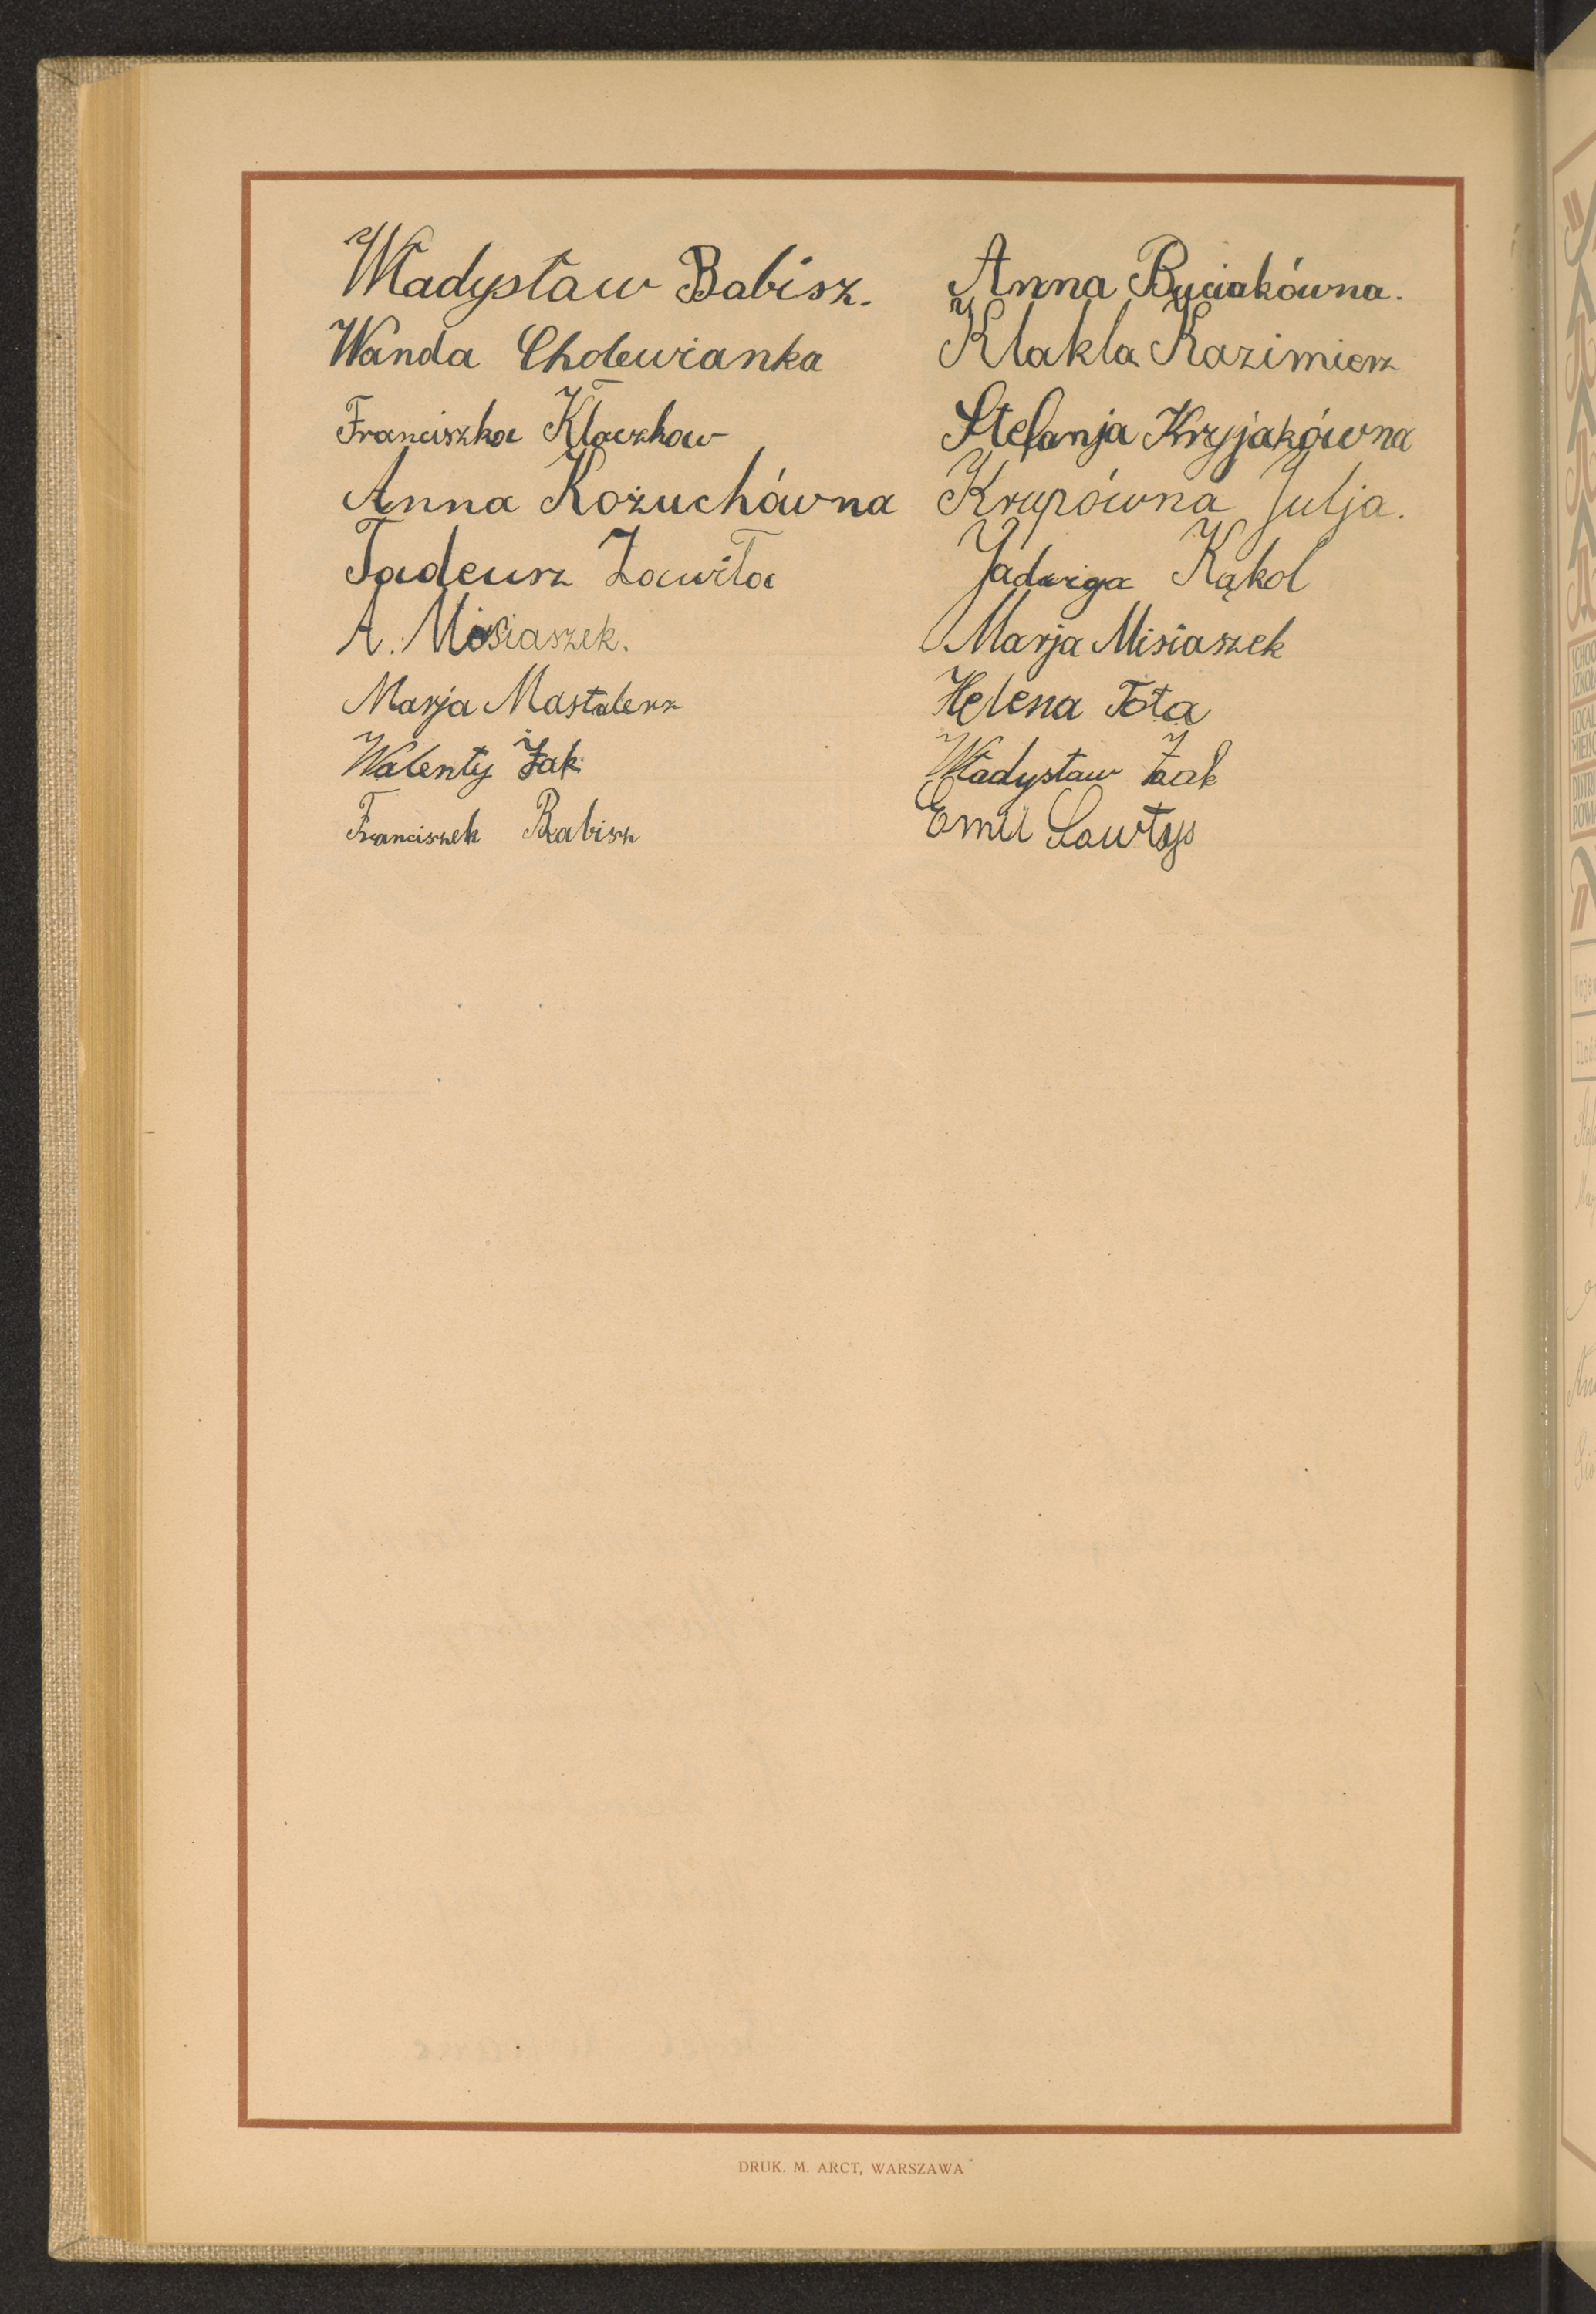 Władysław Babisz.
Wanda Cholewianka
Franciszka Kłaczków
Anna Kożuchówna
Tadeusz Zawiła
A. Misiaszek.
Marja Mastalerz
Walenty Żak
Franciszek Babisz
Anna Buciakówna.
Klakla Kazimierz
Stefanja Kryjakówna
Krupówna Julja.
Jadwiga Kąkol
Marja Misiaszek
Helena Tota
Władysław Żak
Emil
DRUK. M. ARCT, WARSZAWA